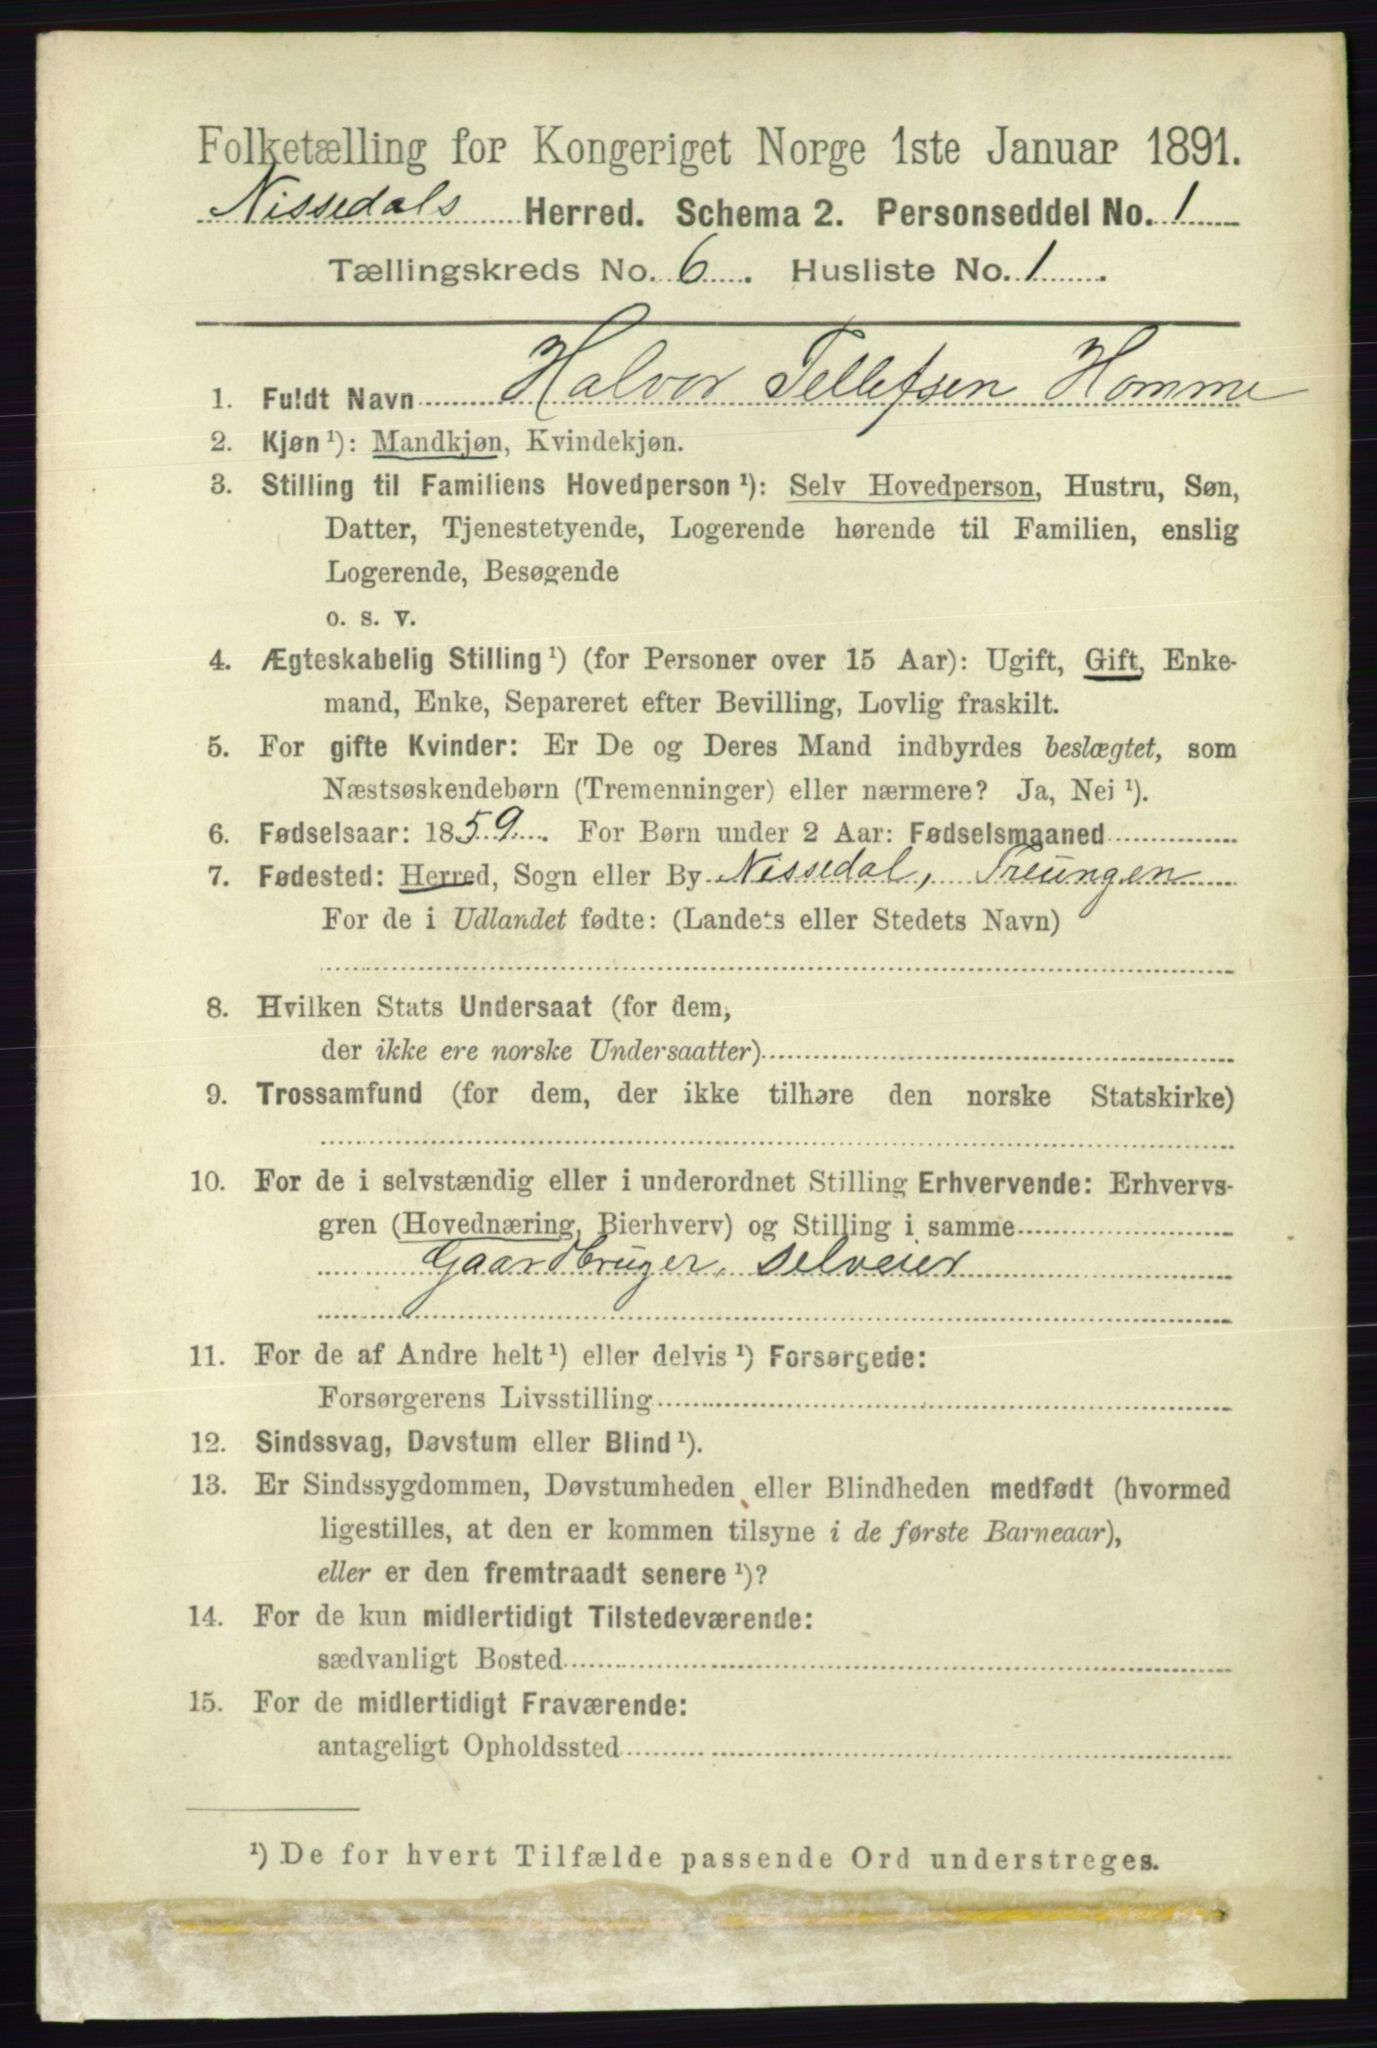 Folketælling for Kongeriget Norge 1ste Januar 1891.
Nissedals Herred. Schema 2. Personseddel No. 1
Tællingskreds No. 6. Husliste No. 1.
1. Fuldt Navn Halvor Tellefsen Homme
2. Kjøn ¹): Mandkjøn, Kvindekjøn.
3. Stilling til Familiens Hovedperson ¹): Selv Hovedperson, Hustru, Søn,
Datter, Tjenestetyende, Logerende hørende til Familien, enslig
Logerende, Besøgende
o. s. v.
4. Ægteskabelig Stilling ¹) (for Personer over 15 Aar): Ugift, Gift, Enke-
mand, Enke, Separeret efter Bevilling, Lovlig fraskilt.
5. For gifte Kvinder: Er De og Deres Mand indbyrdes beslægtet, som
Næstsøskendebørn (Tremenninger) eller nærmere? Ja, Nei ¹).
6. Fødselsaar: 1859. For Børn under 2 Aar: Fødselsmaaned
7. Fødested: Herred, Sogn eller By Nissedal, Treungen
For de i Udlandet fødte: (Landets eller Stedets Navn)
8. Hvilken Stats Undersaat (for dem,
der ikke ere norske Undersaatter)
9. Trossamfund (for dem, der ikke tilhøre den norske Statskirke)
10. For de i selvstændig eller i underordnet Stilling Erhvervende: Erhvervs-
gren (Hovednæring, Bierhverv) og Stilling i samme
Gaardbruger, selveier
11. For de af Andre helt ¹) eller delvis ¹) Forsørgede:
Forsørgerens Livsstilling
12. Sindssvag, Døvstum eller Blind ¹).
13. Er Sindssygdommen, Døvstumheden eller Blindheden medfødt (hvormed
ligestilles, at den er kommen tilsyne i de første Barneaar),
eller er den fremtraadt senere ¹)?
14. For de kun midlertidigt Tilstedeværende:
sædvanligt Bosted
15. For de midlertidigt Fraværende:
antageligt Opholdssted
¹) De for hvert Tilfælde passende Ord understreges.